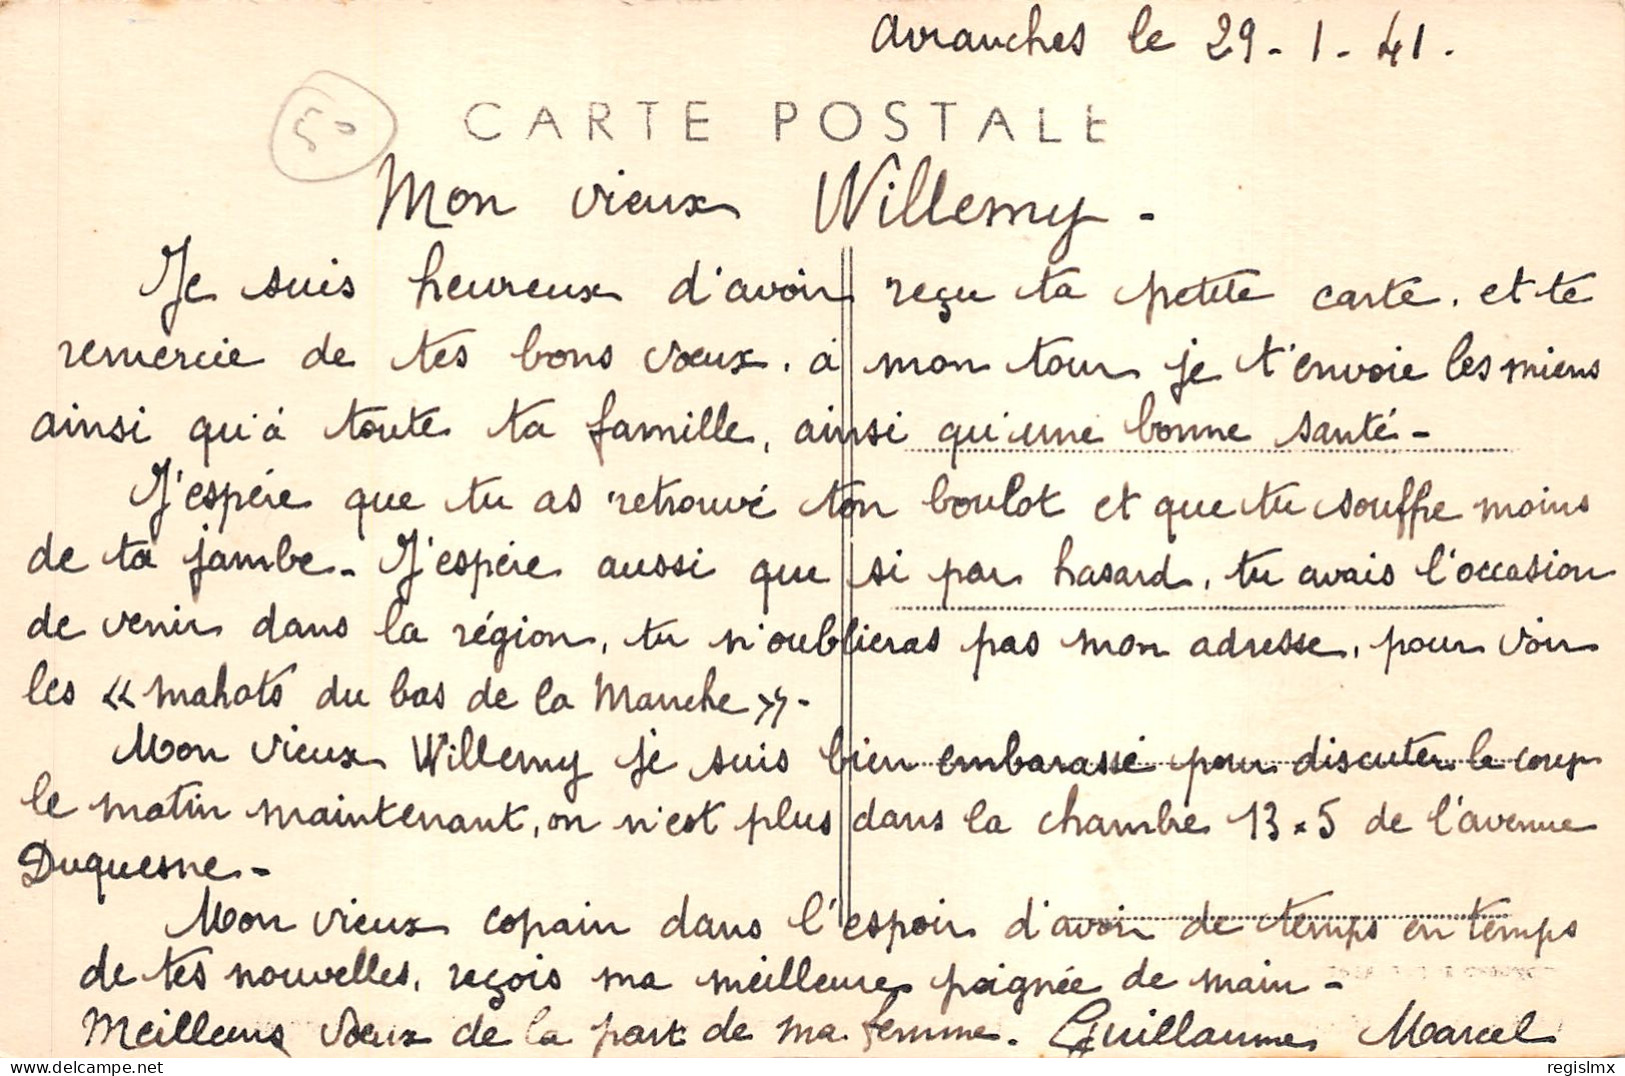 Avranches le 29-1-41.
50
CARTE POSTALE
Mon vieux Willemy -
Je suis heureux d'avoir reçu ta petite carte, et te
remercie de tes bons vœux. à mon tour je t'envoie les miens
ainsi qu'à toute ta famille, ainsi qu'une bonne santé -
J'espère que tu as retrouvé ton boulot et que tu souffre moins
de ta jambe - J'espère aussi que si par hasard, tu avais l'occasion
de venir dans la région, tu n'oublieras pas mon adresse, pour voir
les « mahots du bas de la Manche » -
Mon vieux Willemy je suis bien embarassé pour discuter le coup
le matin maintenant, on n'est plus dans la chambre 13 x 5 de l'avenue
Duquesne -
Mon vieux copain dans l'espoir d'avoir de temps en temps
de tes nouvelles, reçois ma meilleure poignée de main -
Meilleurs vœux de la part de ma femme. Guillaume Marcel
regislmx